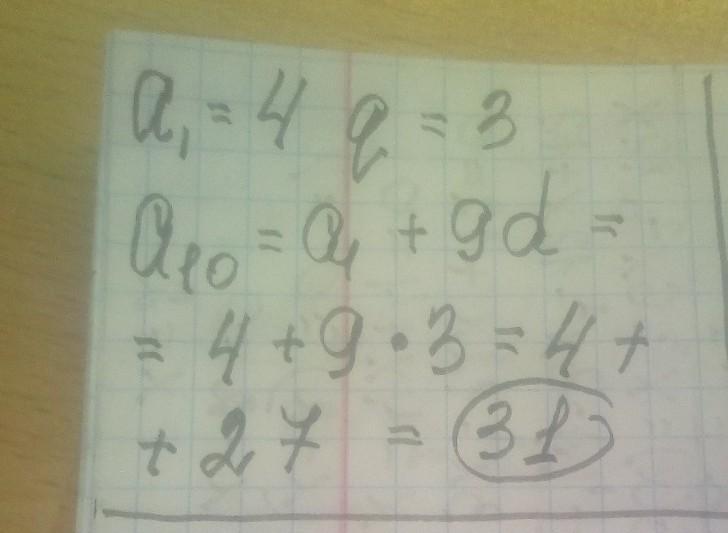 a₁ = 4 q = 3
a₁₀ = a₁ + 9d =
= 4 + 9 • 3 = 4 +
+ 27 = 31